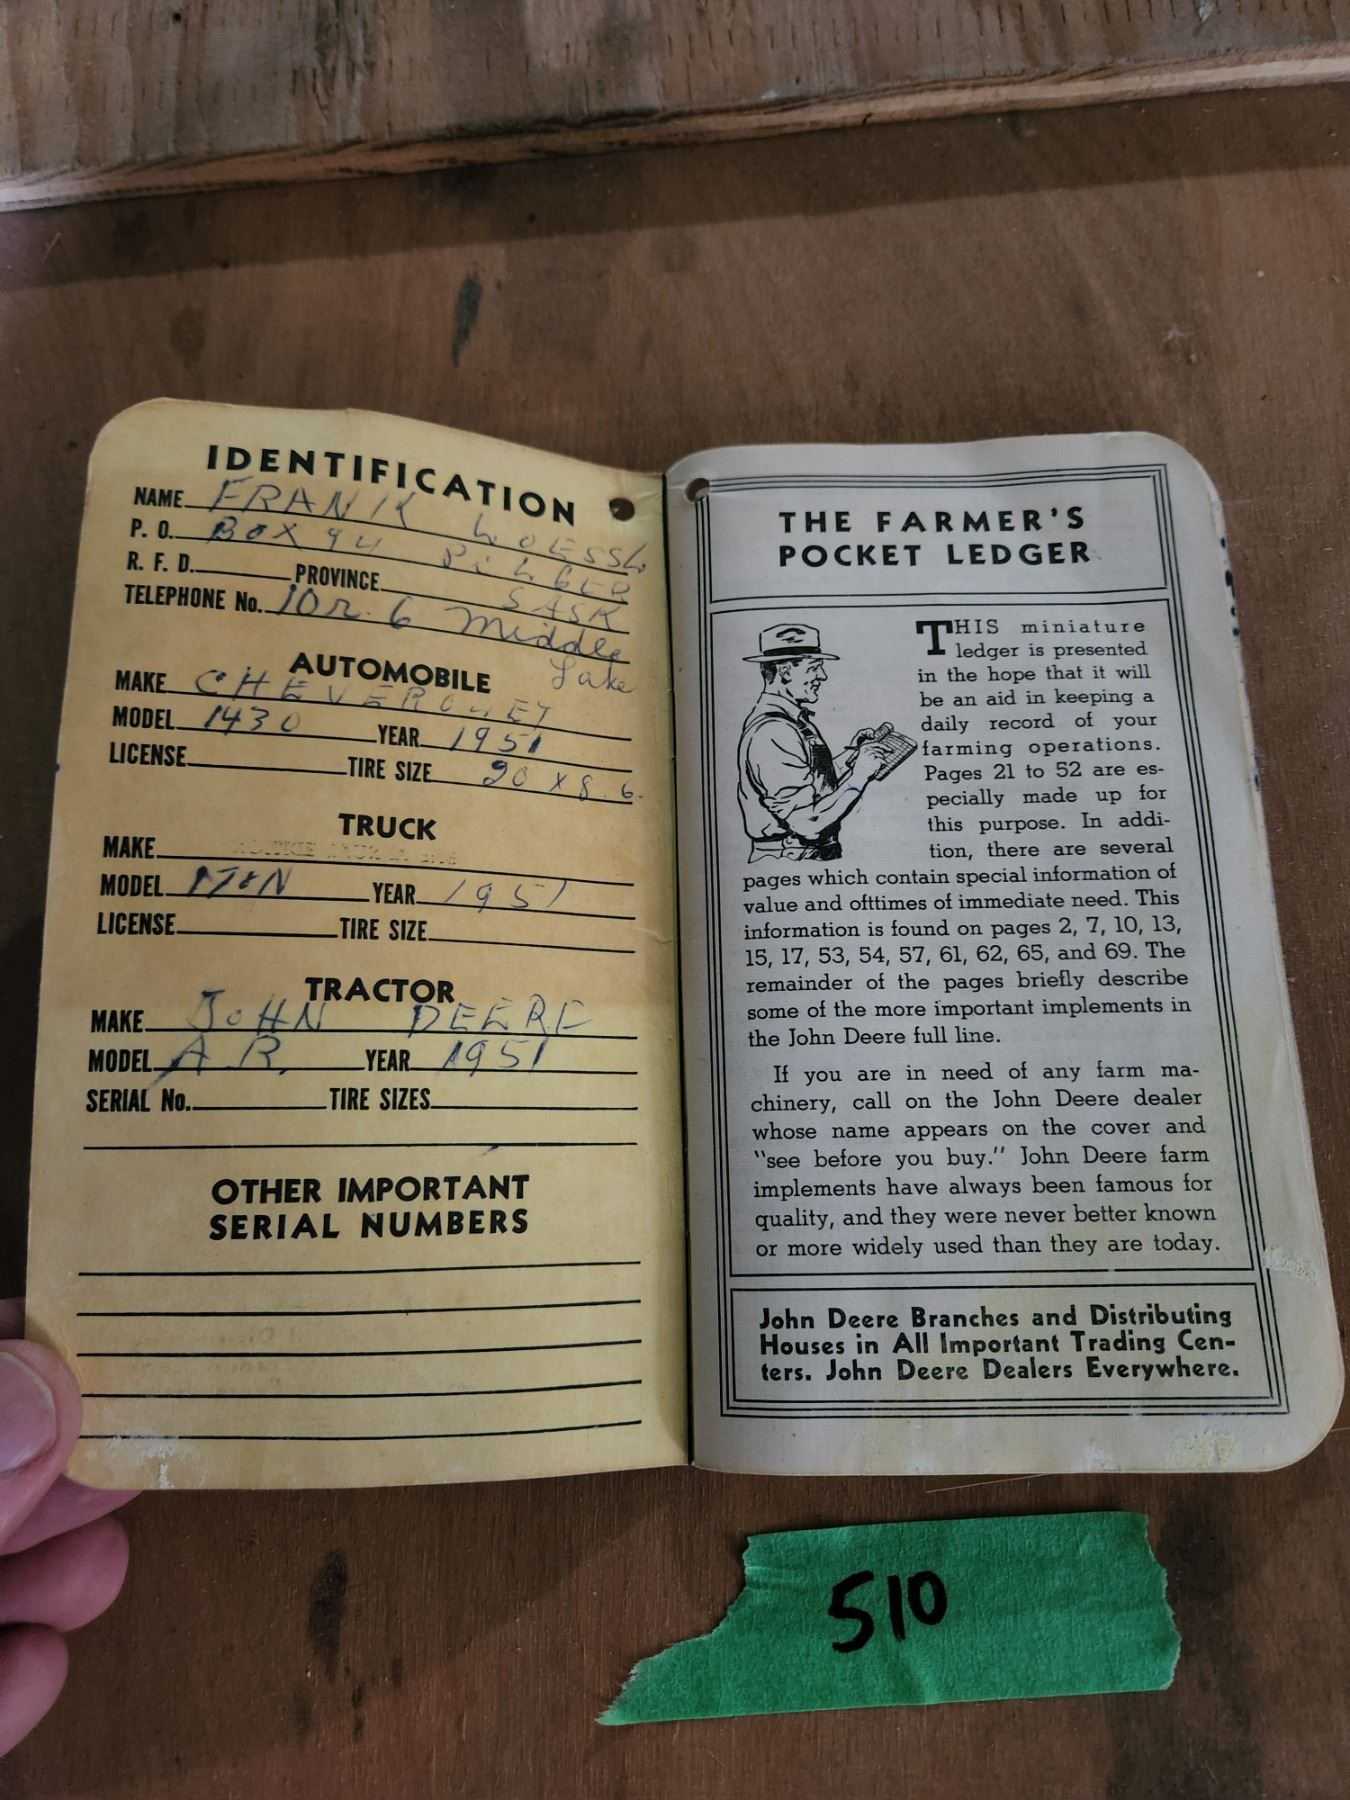 IDENTIFICATION
NAME FRANK
P. O. BOX 94
R. F. D. PROVINCE SASK
TELEPHONE No. 10 r. 6 Middle
Lake
AUTOMOBILE
MAKE CHEVEROLET
MODEL 1430 YEAR 1951
LICENSE TIRE SIZE 20 x 8 6.
TRUCK
MAKE
MODEL YEAR 1951
LICENSE TIRE SIZE
TRACTOR
MAKE JOHN DEERE
MODEL A.R. YEAR 1951
SERIAL No. TIRE SIZES
OTHER IMPORTANT
SERIAL NUMBERS
THE FARMER'S
POCKET LEDGER
THIS miniature
ledger is presented
in the hope that it will
be an aid in keeping a
daily record of your
farming operations.
Pages 21 to 52 are es-
pecially made up for
this purpose. In addi-
tion, there are several
pages which contain special information of
value and ofttimes of immediate need. This
information is found on pages 2, 7, 10, 13,
15, 17, 53, 54, 57, 61, 62, 65, and 69. The
remainder of the pages briefly describe
some of the more important implements in
the John Deere full line.
If you are in need of any farm ma-
chinery, call on the John Deere dealer
whose name appears on the cover and
"see before you buy." John Deere farm
implements have always been famous for
quality, and they were never better known
or more widely used than they are today.
John Deere Branches and Distributing
Houses in All Important Trading Cen-
ters. John Deere Dealers Everywhere.
510